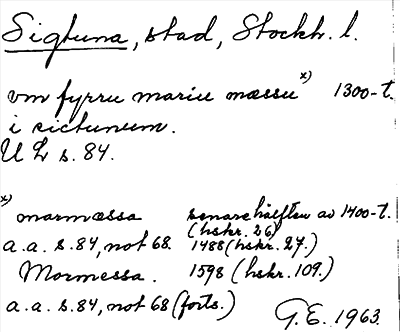 Sigtuna, stad, Stockh. l.
vm fyrru mariu mæssu x) 1300-t.
i sictunum.
U L s. 84.
x) marmæssa senare hälften av 1400-t.
(hskr. 26)
a.a. s. 84, not 68. 1488 (hskr. 27.)
Mormessa. 1598 (hskr. 109.)
a.a. s. 84, not 68 (forts.)
G.E. 1963.